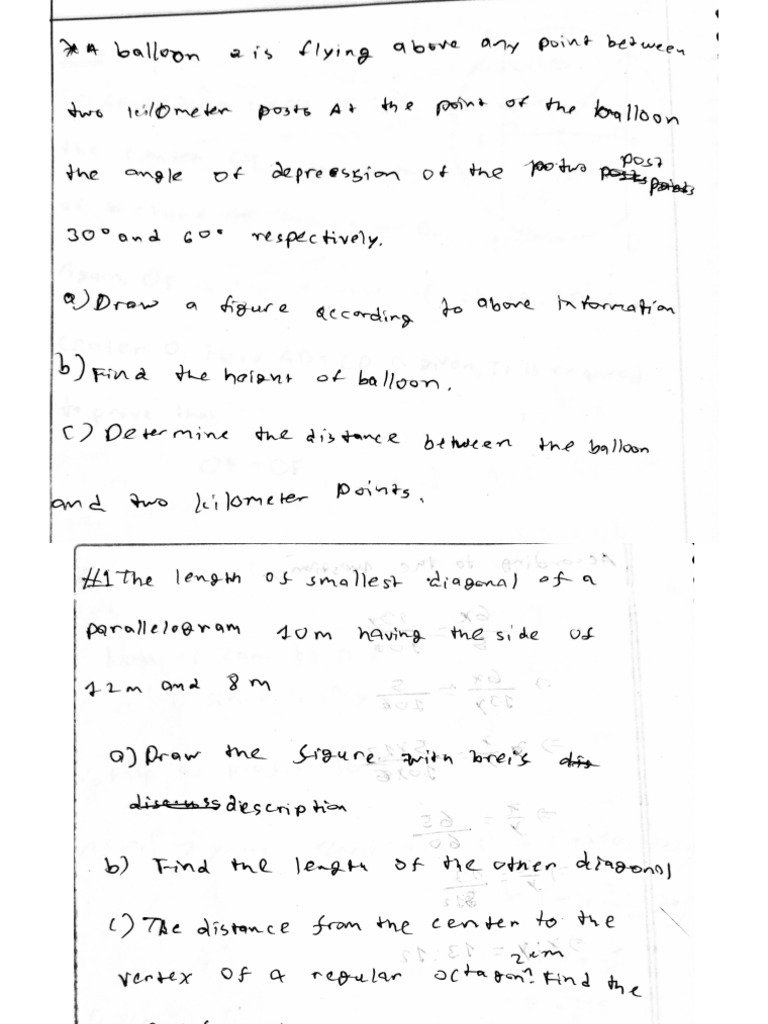 * A balloon is flying above any point between
two kilometer posts At the point of the balloon
the angle of depression of the two post
30° and 60° respectively.
a) Draw a figure according to above information
b) Find the heighnt of balloon.
c) Determine the distance between the balloon
and two kilometer points.
#1 The length of smallest diagonal of a
parallelogram 10m having the side of
12m and 8m
a) Draw the figure with breifs
description
b) Find the length of the other diagonal
c) The distance from the center to the
vertex of a regular octagon? Find the